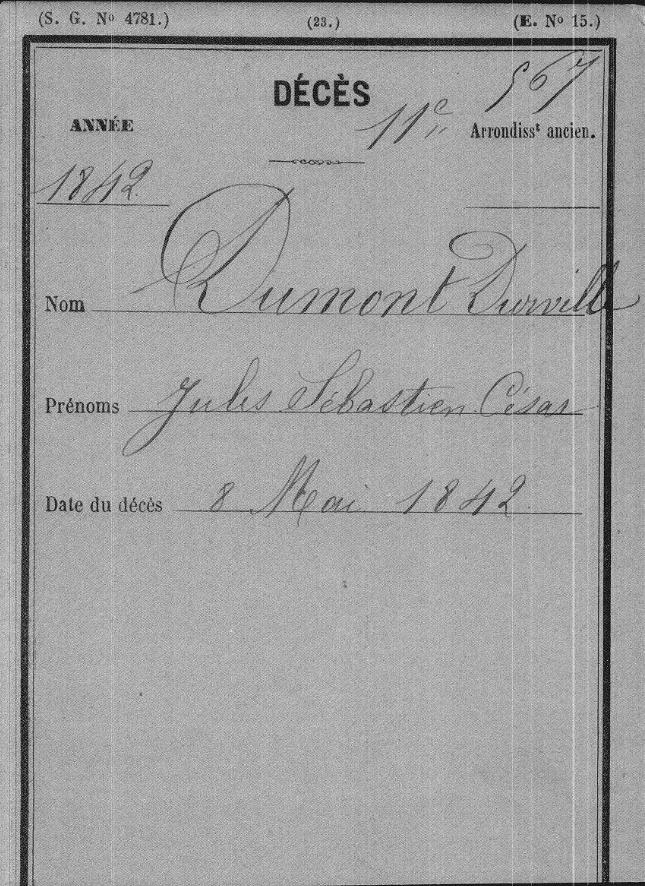 (S. G. Nº 4781.) (23.) (E. Nº 15.)
567
DÉCÈS
ANNÉE 11e Arrondisst ancien.
1842
Nom Dumont Durville
Prénoms Jules Sébastien César
Date du décès 8 Mai 1842